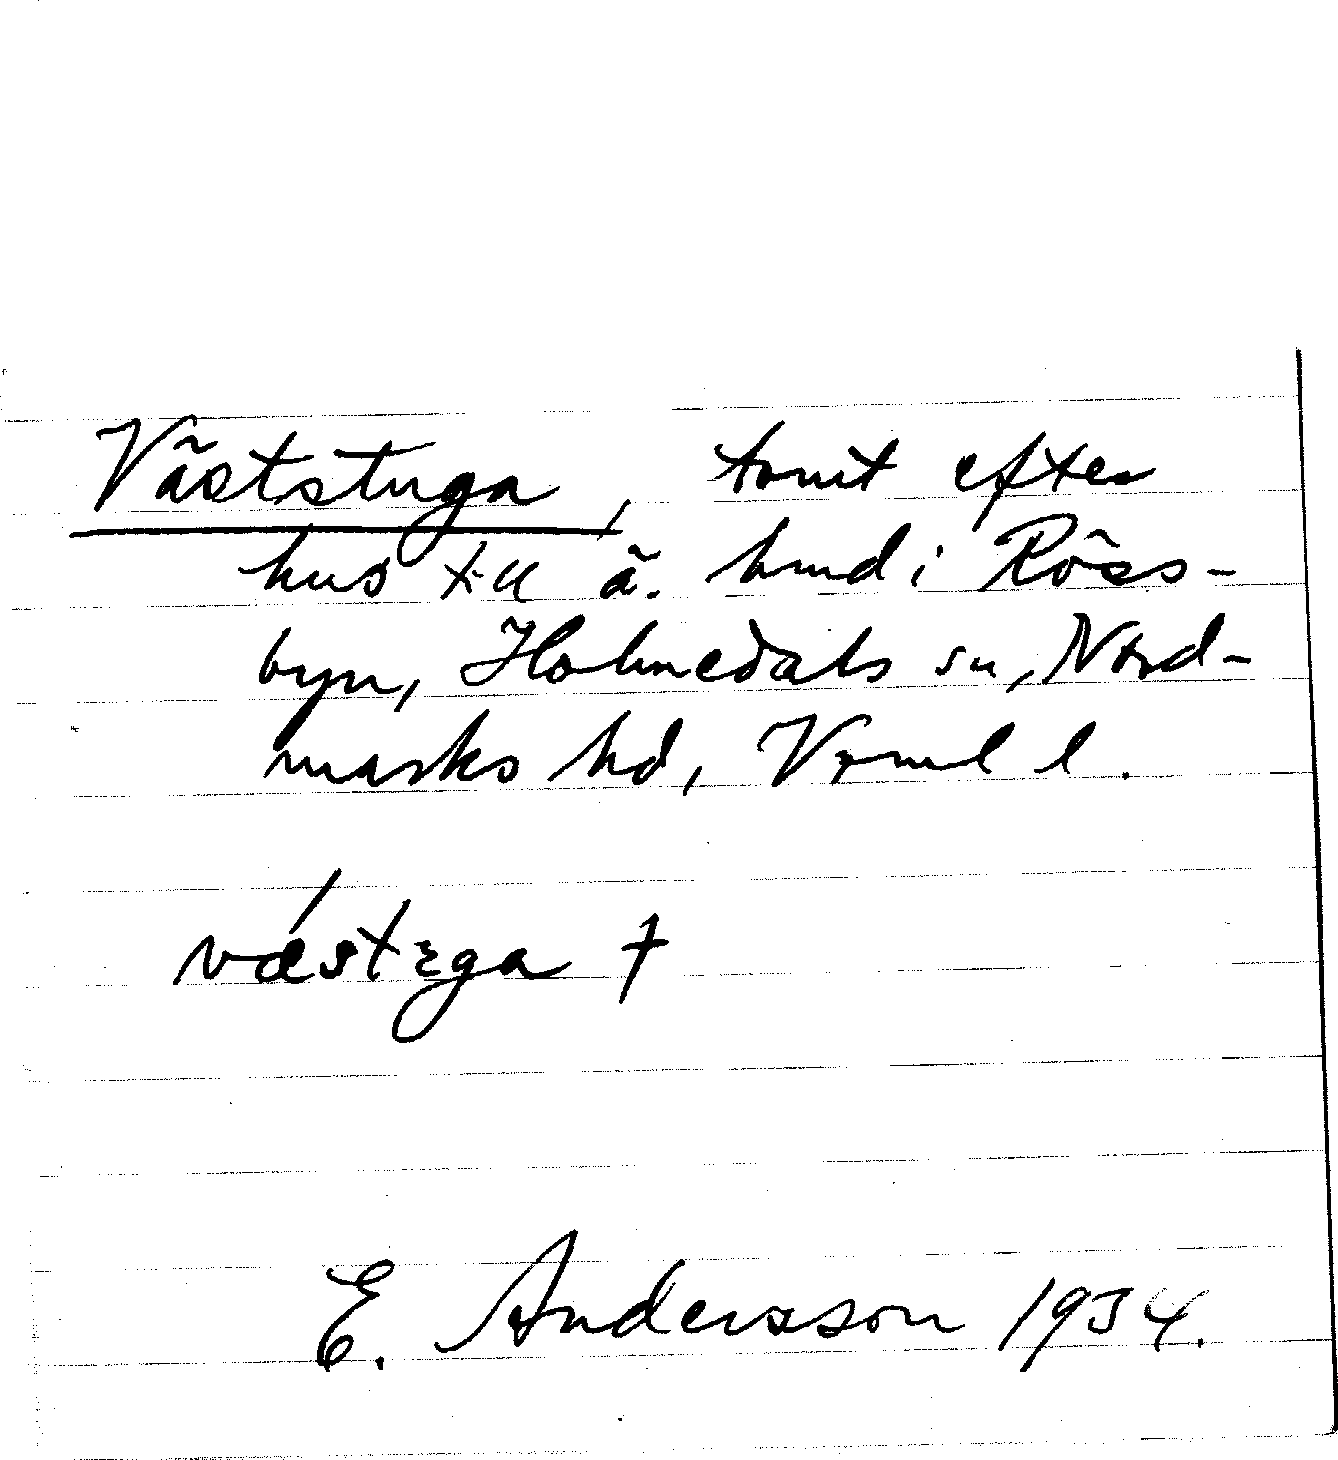 Väststuga, tomt efter
hus till ä. lund i Röss-
byn, Holmedals sn, Nord-
marks hd, Vrml l.
E. Andersson 1934.